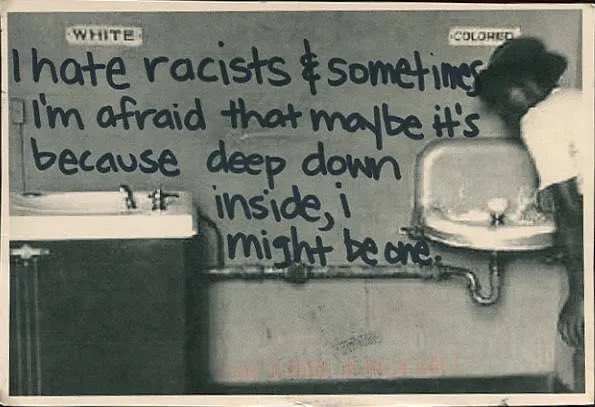 WHITE
COLORED
I hate racists & sometimes
I'm afraid that maybe it's
because deep down
inside, i
might be one.